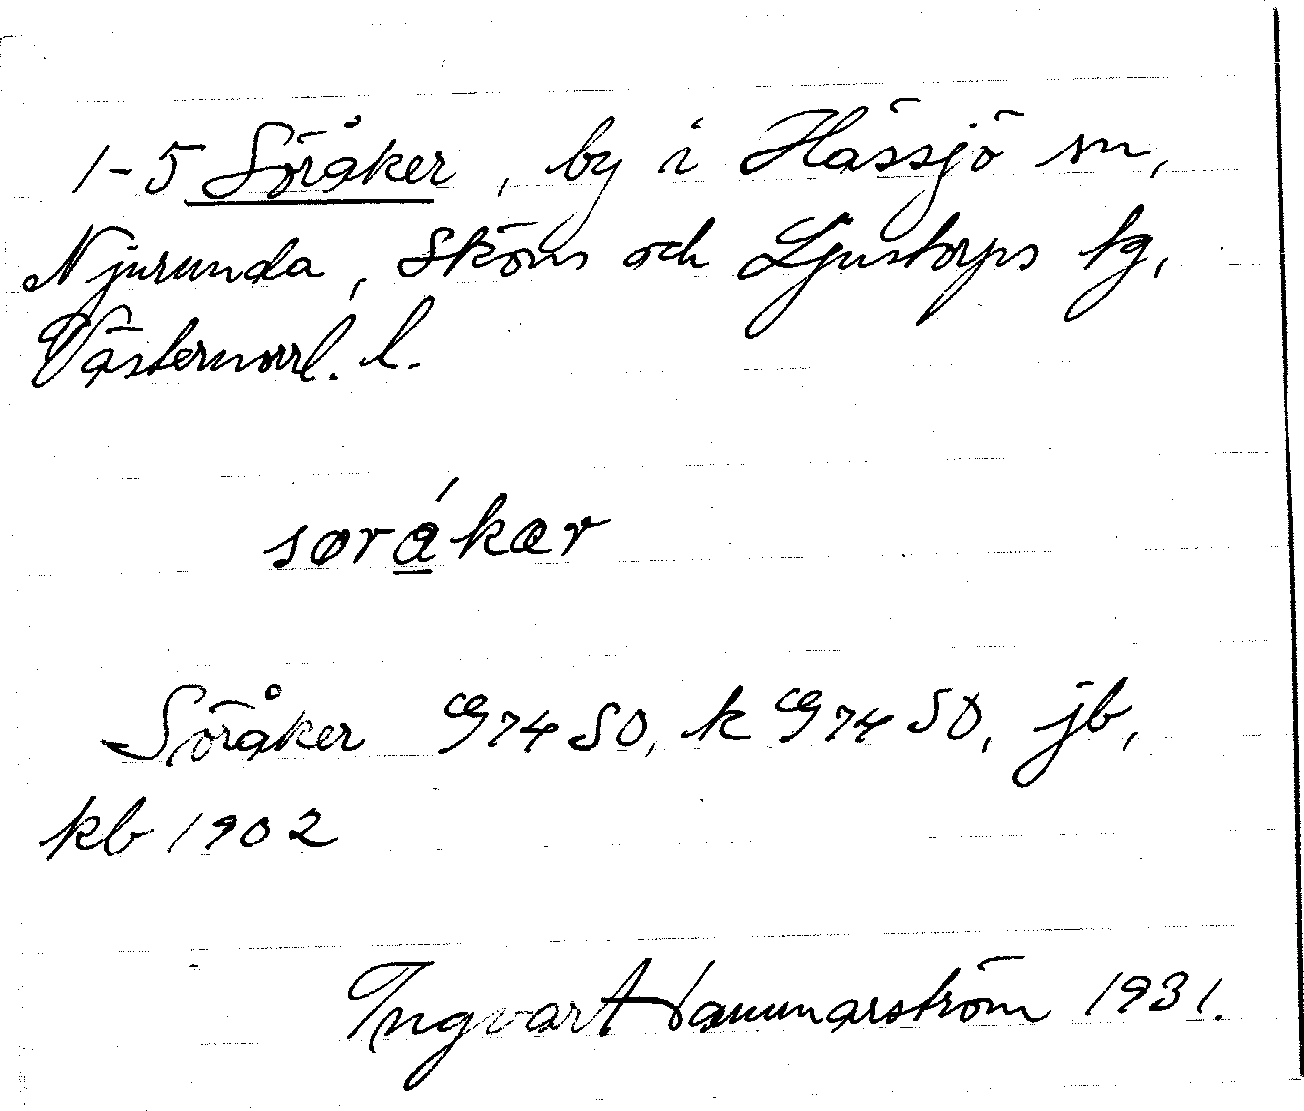 1-5 Söråker, by i Hässjö sn,
Njurunda, Sköns och Ljustorps tg,
Västernorrl. l.
sørákær
Söråker G74 SO, k G74 SO, jb,
kb 1902
Ingvart Hammarström 1931.